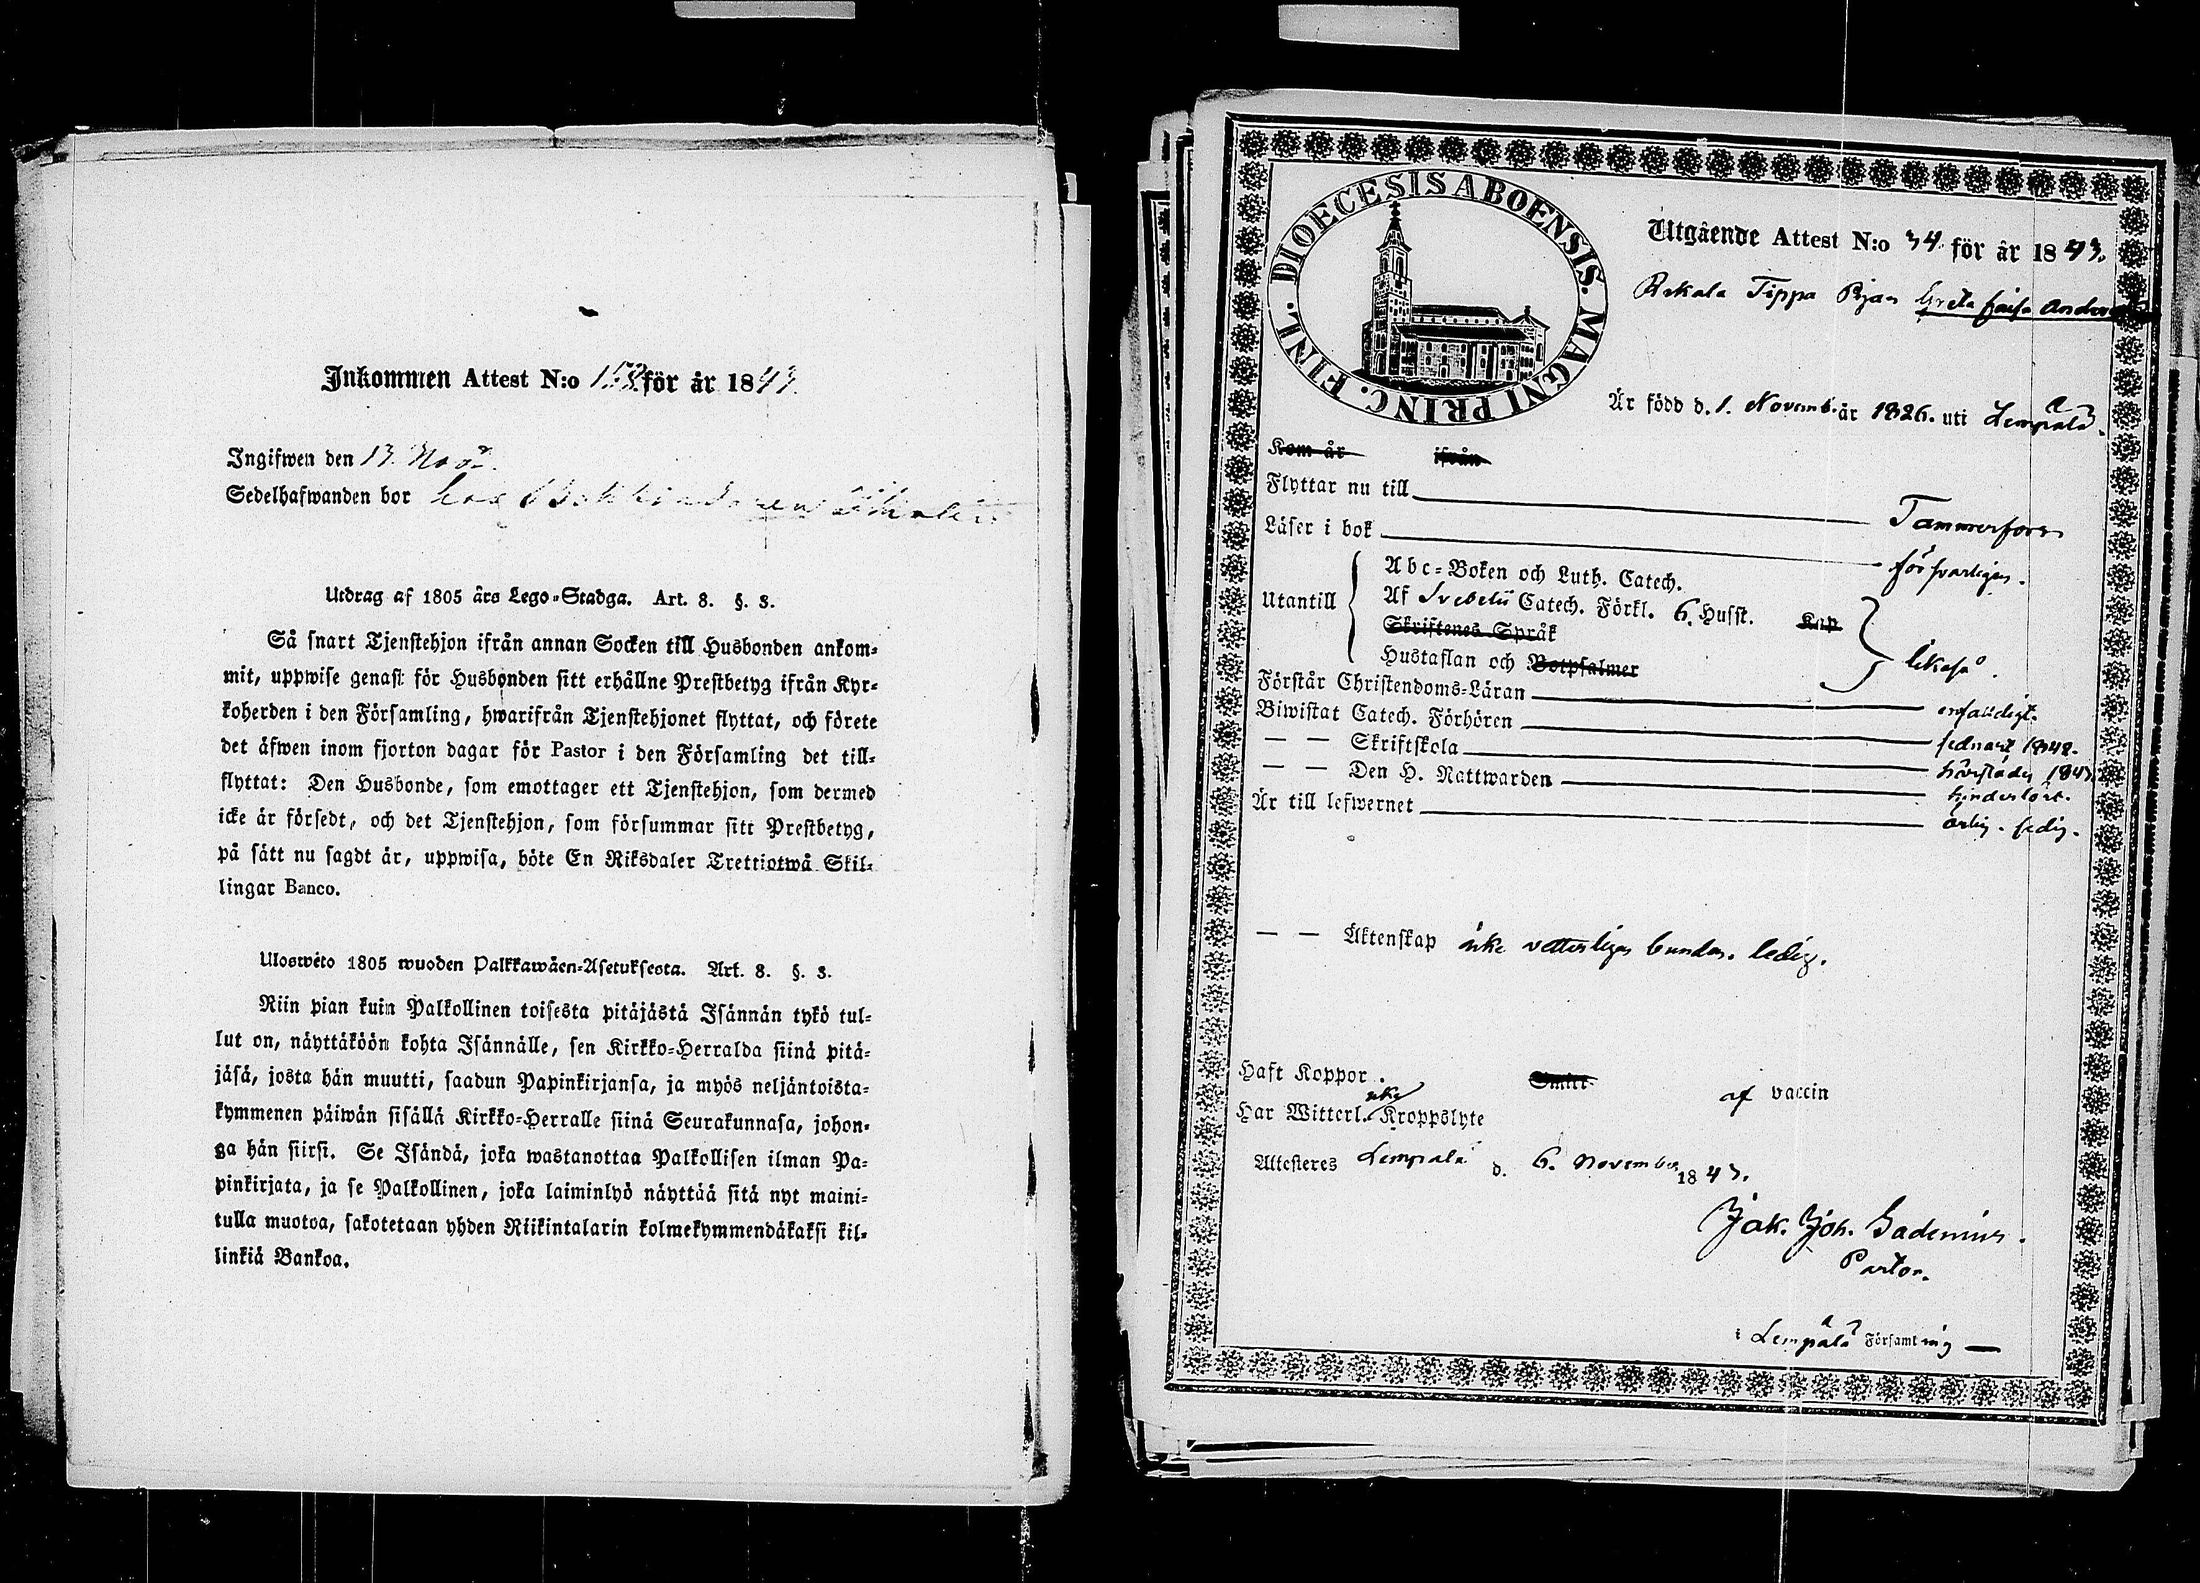 Inkommen Attest N:o 152 för år 1843.
Ingifwen den 13. Nov.
Sedelhafwanden bor hos
Utdrag af 1805 års Lego-Stadga. Art. 8. §. 3.
Så snart Tjenstehjon ifrån annan Socken till Husbonden ankom-
mit, uppwise genast för Husbonden sitt erhållne Prestbetyg ifrån Kyr-
koherden i den Församling, hwarifrån Tjenstehjonet flyttat, och förete
det äfwen inom fjorton dagar för Pastor i den Församling det till-
flyttat: Den Husbonde, som emottager ett Tjenstehjon, som dermed
icke är försedt, och det Tjenstehjon, som försummar sitt Prestbetyg,
på sätt nu sagdt är, uppwisa, böte En Riksdaler Trettiotwå Skil-
lingar Banco.
Uloswéto 1805 wuoden Palkkawäen-Asetuksesta. Art. 8. §. 3.
Niin pian kuin Palkollinen toisesta pitäjästä Isännän tykö tul-
lut on, näyttäköön kohta Isännälle, sen Kirkko-Herralda siinä pitä-
jäsä, josta hän muutti, saadun Papinkirjansa, ja myös neljäntoista-
kymmenen päiwän sisällä Kirkko-Herralle siinä Seurakunnasa, johon-
ga hän siirsi. Se Isändä, joka wastanottaa Palkollisen ilman Pa-
pinkirjata, ja se Palkollinen, joka laiminlyö näyttää sitä nyt maini-
tulla muotoa, sakotetaan yhden Riikintalarin kolmekymmendäkaksi kil-
linkiä Bankoa.
DIOECESIS ABOENSIS. MAGNI PRINC. FINL.
Utgående Attest N:o 34. för år 1843.
Tippa Pigan Greta Caisa
Är född d. 1. Novemb. år 1826. uti Lempälä.
Kom år ifrån
Flyttar nu till Tammerfors
Läser i bok försvarligen.
Utantill
Abc-Boken och Luth. Catech.
Af Svebelii Catech. Förkl. 6. Husst. Kap
Skriftenes Språk
Hustaflan och Botpsalmer
likaså.
Förstår Christendoms-Läran enfaldigt.
Biwistat Catech. Förhören sednast 1842.
— — Skriftskola härstädes 1843.
— — Den H. Nattwarden hinderlöst.
Är till lefwernet ärlig. sedig.
— — Äktenskap icke vetterligen bunden. ledig.
Haft Koppor. Smitt- af vaccin
Har Witterl. icke Kroppslyte
Attesteres Lempälä d. 6. November 1843.
Jak. Joh. Gadenius.
Pastor.
i Lempälä Församling